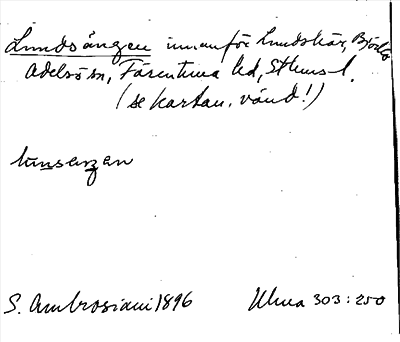 Lundsängen innanför Lundskär, Björkö
Adelsö sn, Färentuna hd, Sthms l.
(se kartan. vänd!)
lunsεŋεn
S. Ambrosiani 1896 Ulma 303:250